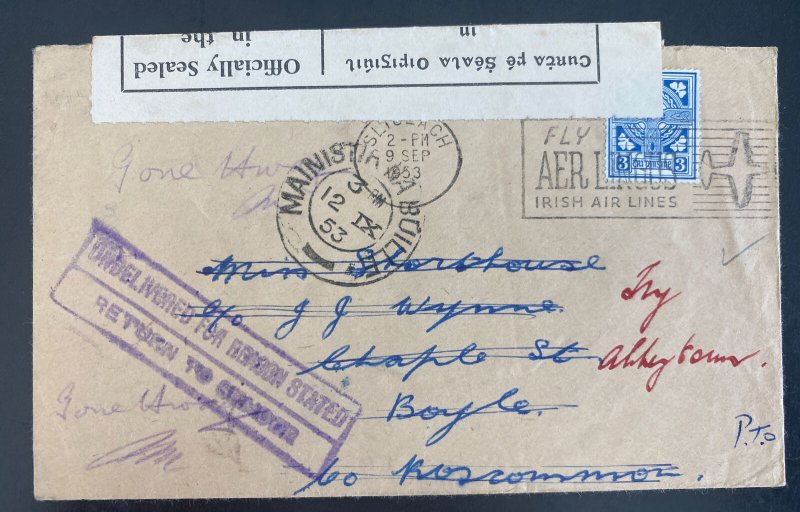 Officially Sealed
in the
Cunta fé Śéala Oifigiúil
in
SLIGEACH
2-PM
9 SEP
1953
FLY
AER LINGUS
IRISH AIR LINES
3 3
MAINISTIR NA BUILLE
3 PM
12 IX
53
Gone Away
Miss
c/o J J Wynne
Chaple St
Boyle.
Co Roscommon.
Try
Abbeytown.
P.T.O
UNDELIVERED FOR REASON STATED
RETURN TO SENDER
Gone Away